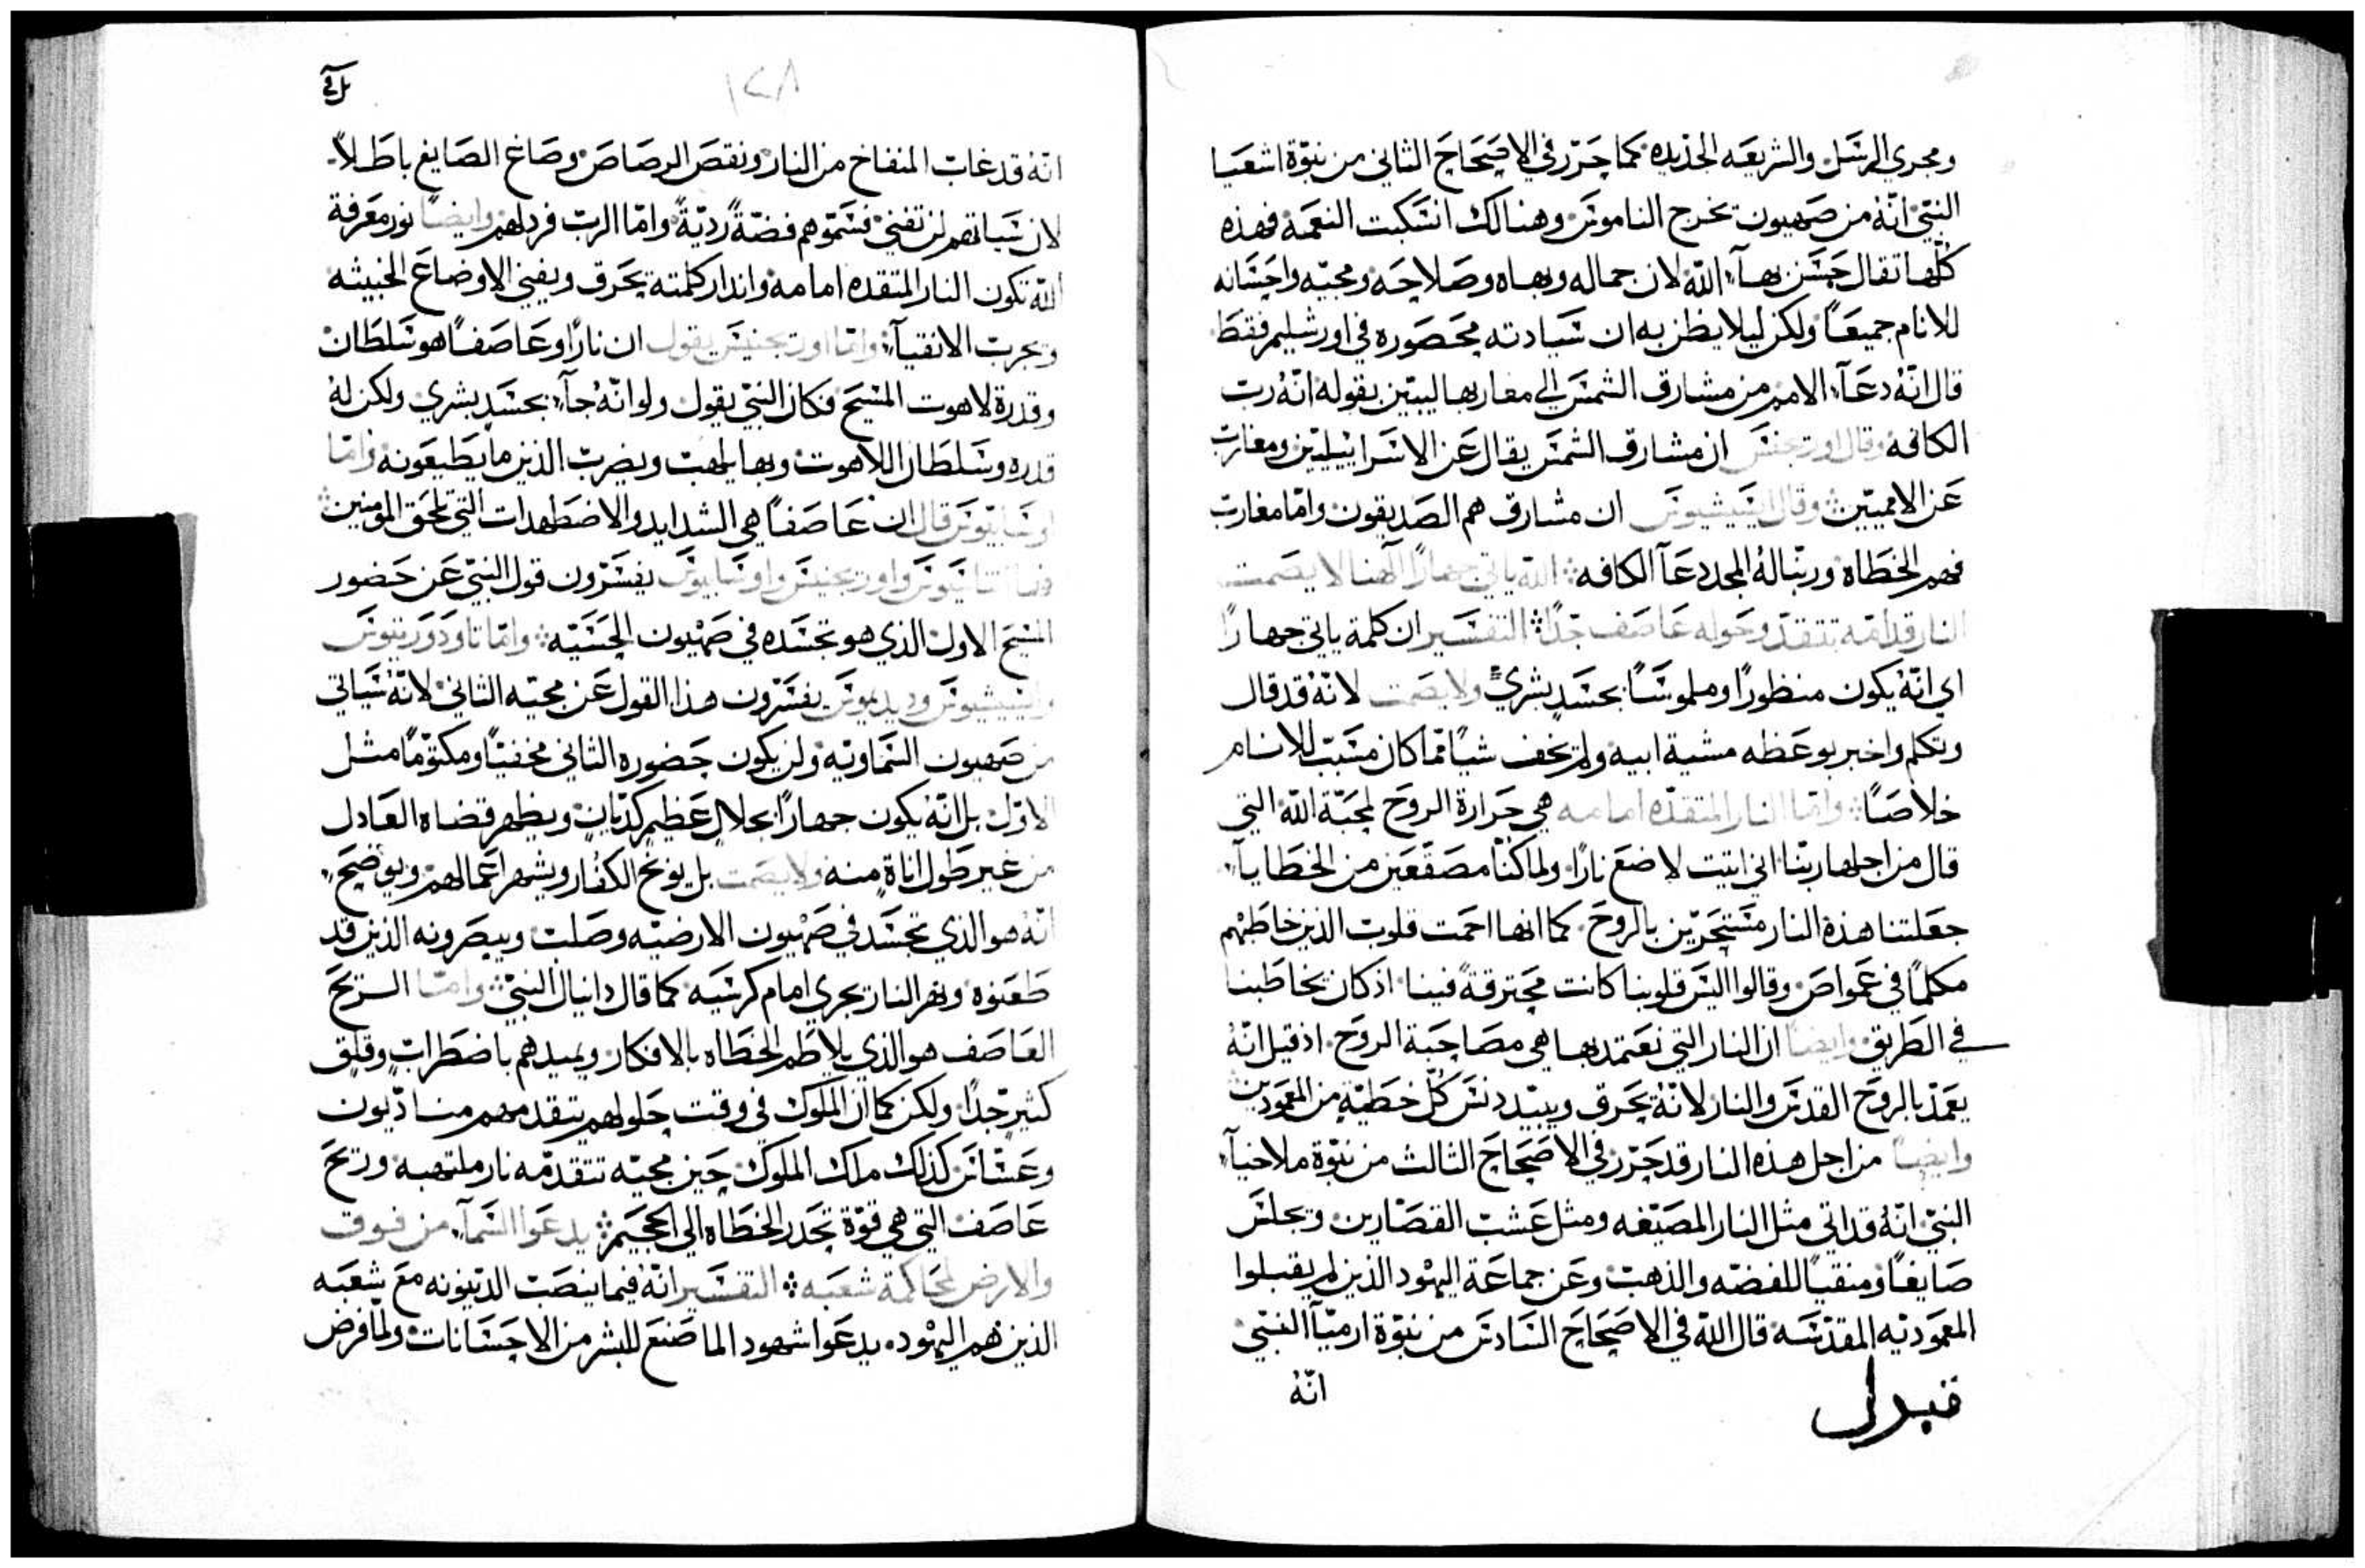 ومجري الرسل والشريعه الجديده كما حرر في الاصحاح الثاني من نبوّة اشعيا
النبيّ انّهُ من صهيون تخرج الناموس وهنالك انسكبت النعمة فهذه
كلّها تقال حسن بهآء اللّه لان جماله وبهاه وصلاحه ومجيّه واحسانه
للانام جميعاً ولكن ليلا يظن به ان سيادته محصوره في اورشليم فقط
قال انّهُ دعآء الامم من مشارق الشمس الي مغاربها ليبيّن بقوله انّهُ ربّ
الكافه وقال اورجنس ان مشارق الشمس يقال عن الاسراييليّين ومغارب
عن الامميّين وقال ايسيشيوس ان مشارق هم الصديقون وامّا مغارب
فهم الخطاه وربّنا لهُ المجد دعآ الكافه اللّه ياتي جهاراً الهنا لا يصمت
النار قدامه تتقدّ وحوله عاصف جدّاً التفسير ان كلمة ياتي جهاراً
اي انّهُ يكون منظوراً وملموساً بجسد بشريّ ولا يصمت لانّهُ قد قال
وتكلم واخبر بوعظه مشية ابيه ولم يخف شياً ممّا كان مسبّب للانام
خلاصاً وامّا النار المتقدّه امامه هي حرارة الروح لمحبّة اللّه التي
قال من اجلها ربّنا اني اتيت لاضع ناراً ولما كنّا مصقعين من الخطايآ
جعلتنا هذة النار مستحرّين بالروح كما انها احمت قلوب الذين خاطبهم
مكلماً في عمواص وقالوا اليس قلوبنا كانت محترقةً فينا اذ كان يخاطبنا
في الطريق وايضاً ان النار التي نعتمد بها هي مصاحبة الروح اذ قيل انّهُ
يعمّد بالروح القدس والنار لانّهُ يحرق ويبيد دنس كلّ خطيّةٍ من المعمودين
وايضاً من اجل هذه النار قد حرّر في الاصحاح الثالث من نبوّة ملاخيآء
النبيّ انّهُ قد اتي مثل النار المصيّغه ومثل عشب القصّارين وتجلس
صايغاً ومنقياً للفضّه والذهب وعن جماعة اليهود الذين لم يقبلوا
المعموديّه المقدّسه قال اللّه في الاصحاح السادس من نبوّة ارميّآ النبيّ
انّهُ
انّهُ قد غاب المنفاخ من النار ونقص الرصاص وصاغ الصايغ باطلاً
لان سياتهم لن تفني فسمّوهم فضّةً رديّةً وامّا الرب فرذلهم وايضاً نور معرفة
اللّه تكون النار المتقده امامه وانذار كلمته يحرق ويفني الاوضاع الخبيثه
ويجرب الانقيآء وامّا اورجنيس يقول ان ناراً وعاصفاً هو سلطان
وقدرة لاهوت المسيح فكان النبيّ يقول ولو انّهُ جآء بجسد بشري ولكن لهُ
قدره وسلطان اللاهوت وبها يلهب ويضرب الذين ما يطيعونه وامّا
اوسابيوس قال ان عاصفاً هي الشدايد والاضطهدات التي تلحق المومنين
فاما اتناسيوس واورجنيس واوسابيوس يفسّرون قول النبيّ عن حضور
المسيح الاول الذي هو تجسّده في صهيون الحسّيّه وامّا تاودوريتوس
وايسيشيوس وديديموس يفسّرون هذا القول عن مجيّه الثاني لانّهُ سياتي
من صهيون السماويّه ولن يكون حضوره الثاني مخفيّاً ومكتوماً مثل
الاوّل بل انّهُ يكون جهاراً بجلالٍ عظيم كديّان ويظهر قضاه العادل
من غير طول اناةٍ منه ولا يصمت بل يوبّخ الكفّار ويشهر اعمالهم ويوضح
انّهُ هو الذي تجسّد في صهيون الارضيّه وصلب ويبصرونه الذين قد
طعنوه ونهر النار تجري امام كرسيّه كما قال دانيال النبيّ وامّا الريح
العاصف هو الذي يلاطم الخطاه بالافكار ويبيدهم باضطراب وقلق
كثير جدّاً ولكن كما ان الملوك في وقت حلولهم يتقدمهم مناديّون
وعسّاس كذلك ملك الملوك حين مجيّه تتقدّمه نار ملتهبه وريح
عاصف التي هي قوّة تحدر الخطاه الي الجحيم يدعوا السمآء من فوق
والارض لمحاكمة شعبه التفسير انّهُ فيما ينصب الديّنونه مع شعبه
الذين هم اليهود يدعوا شهود الما صنع للبشر من الاحسانات ولمّا فرض